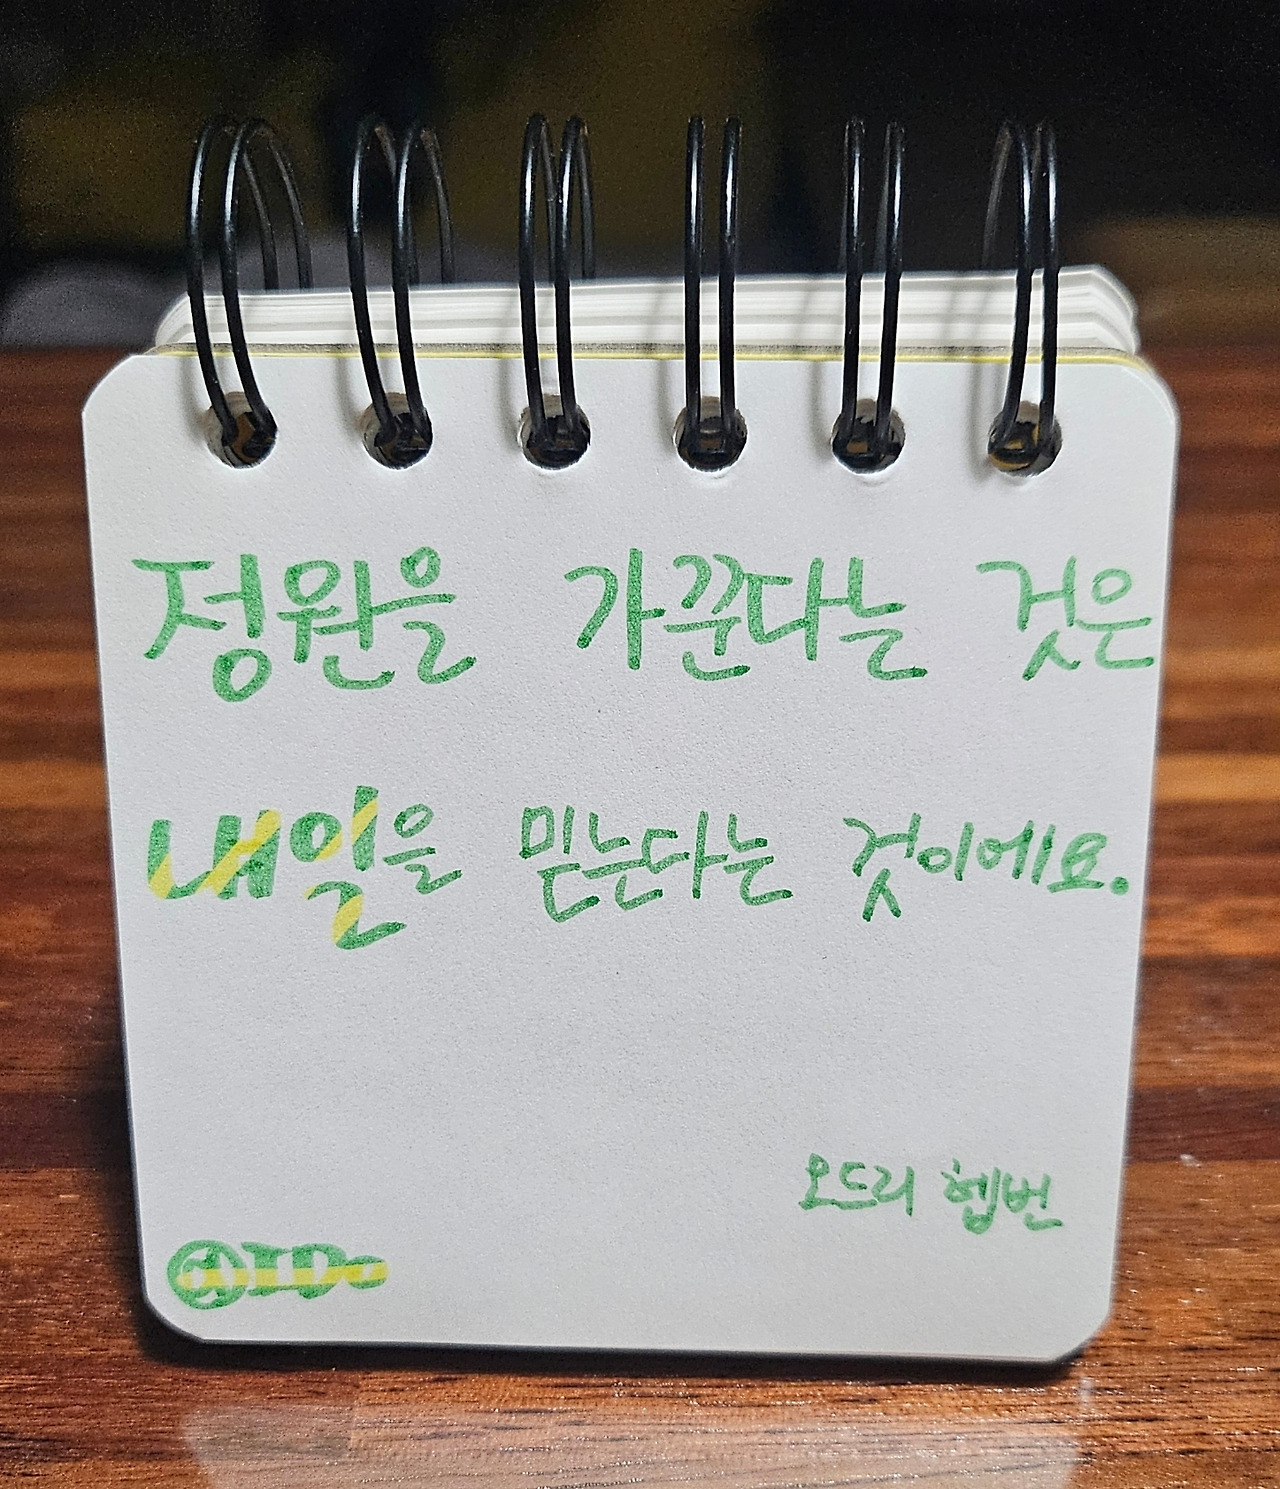 정원을 가꾼다는 것은
내일을 믿는다는 것이에요.
오드리 헵번